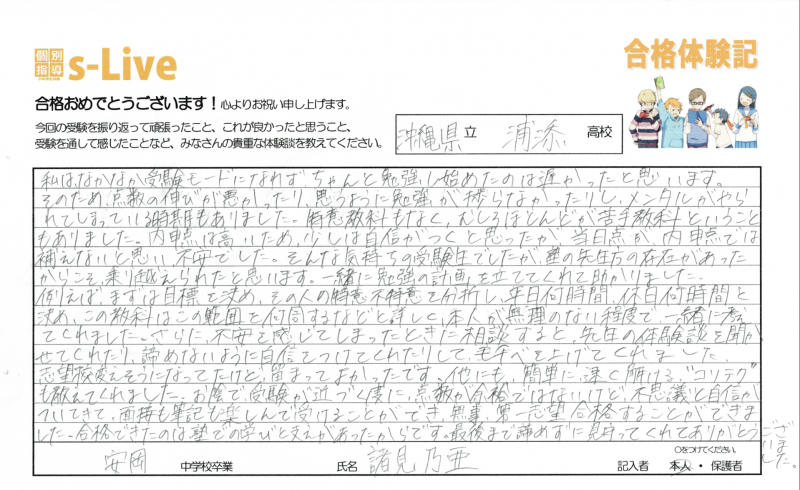 個別指導 s-Live
合格体験記
合格おめでとうございます！心よりお祝い申し上げます。
今回の受験を振り返って頑張ったこと、これが良かったと思うこと、
受験を通して感じたことなど、みなさんの貴重な体験談を教えてください。
沖縄県 立 浦添 高校
私は、なかなか受験モードになれずちゃんと勉強し始めたのは遅かったと思います。
そのため、点数の伸びが悪かったり、思うように勉強が捗らなかったりし、メンタルがやら
れてしまっている時期もありました。得意教科もなく、むしろほとんどが苦手教科ということ
もありました。内申点は高いため、少しは自信がつくと思ったが、当日点が内申点では
補えないと思い不安でした。そんな気持ちの受験生でしたが、塾の先生方の存在があった
からこそ、乗り越えられたと思います。一緒に勉強の計画を立ててくれて助かりました。
例えば、まずは目標を決め、その人の得意不得意を分析し、平日何時間、休日何時間と
決め、この教科はこの範囲を何問するなどと詳しく、本人が無理のない程度で一緒に考え
てくれました。さらに、不安を感じてしまったときに相談すると、先生の体験談を聞か
せてくれたり、諦めないように自信をつけてくれたりして、モチベを上げてくれました。
志望校変えそうになってたけど、留まってよかったです。他にも、簡単に速く解ける、"コツテク"
も教えてくれました。お陰で受験が近づく度に、点数が合格ではないけど、不思議と自信が
ついてきて、面接も筆記も楽しんで受けることができ、無事、第一志望合格することができま
した。合格できたのは塾での学びと支えがあったからです。最後まで諦めずに見守ってくれてありがとうございました。
〇をつけてください。
安岡 中学校卒業 氏名 諸見 乃亜 記入者 本人・保護者